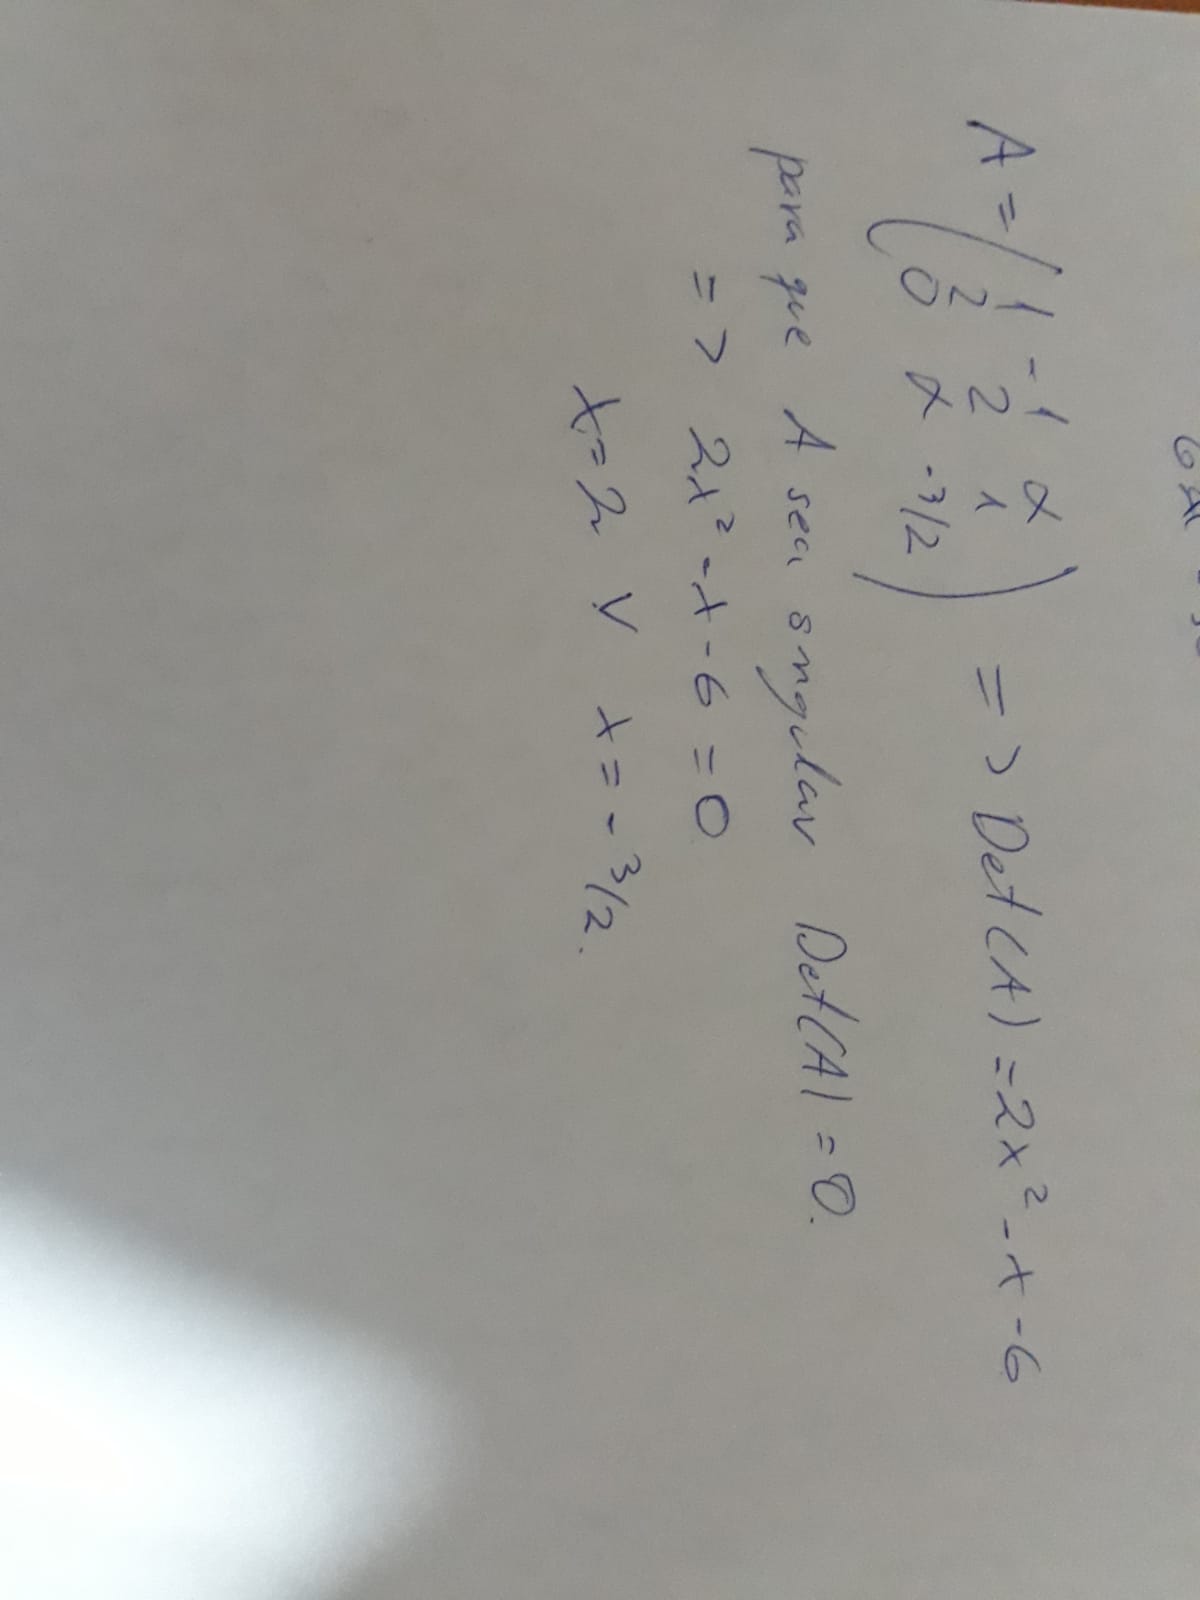 A = ( 1 -1 α
2 2 1
0 α -3/2 ) => Det(A) = 2x² - x - 6
para que A sea singular Det(A) = 0.
=> 2x² - x - 6 = 0
x = 2 ∨ x = -3/2.